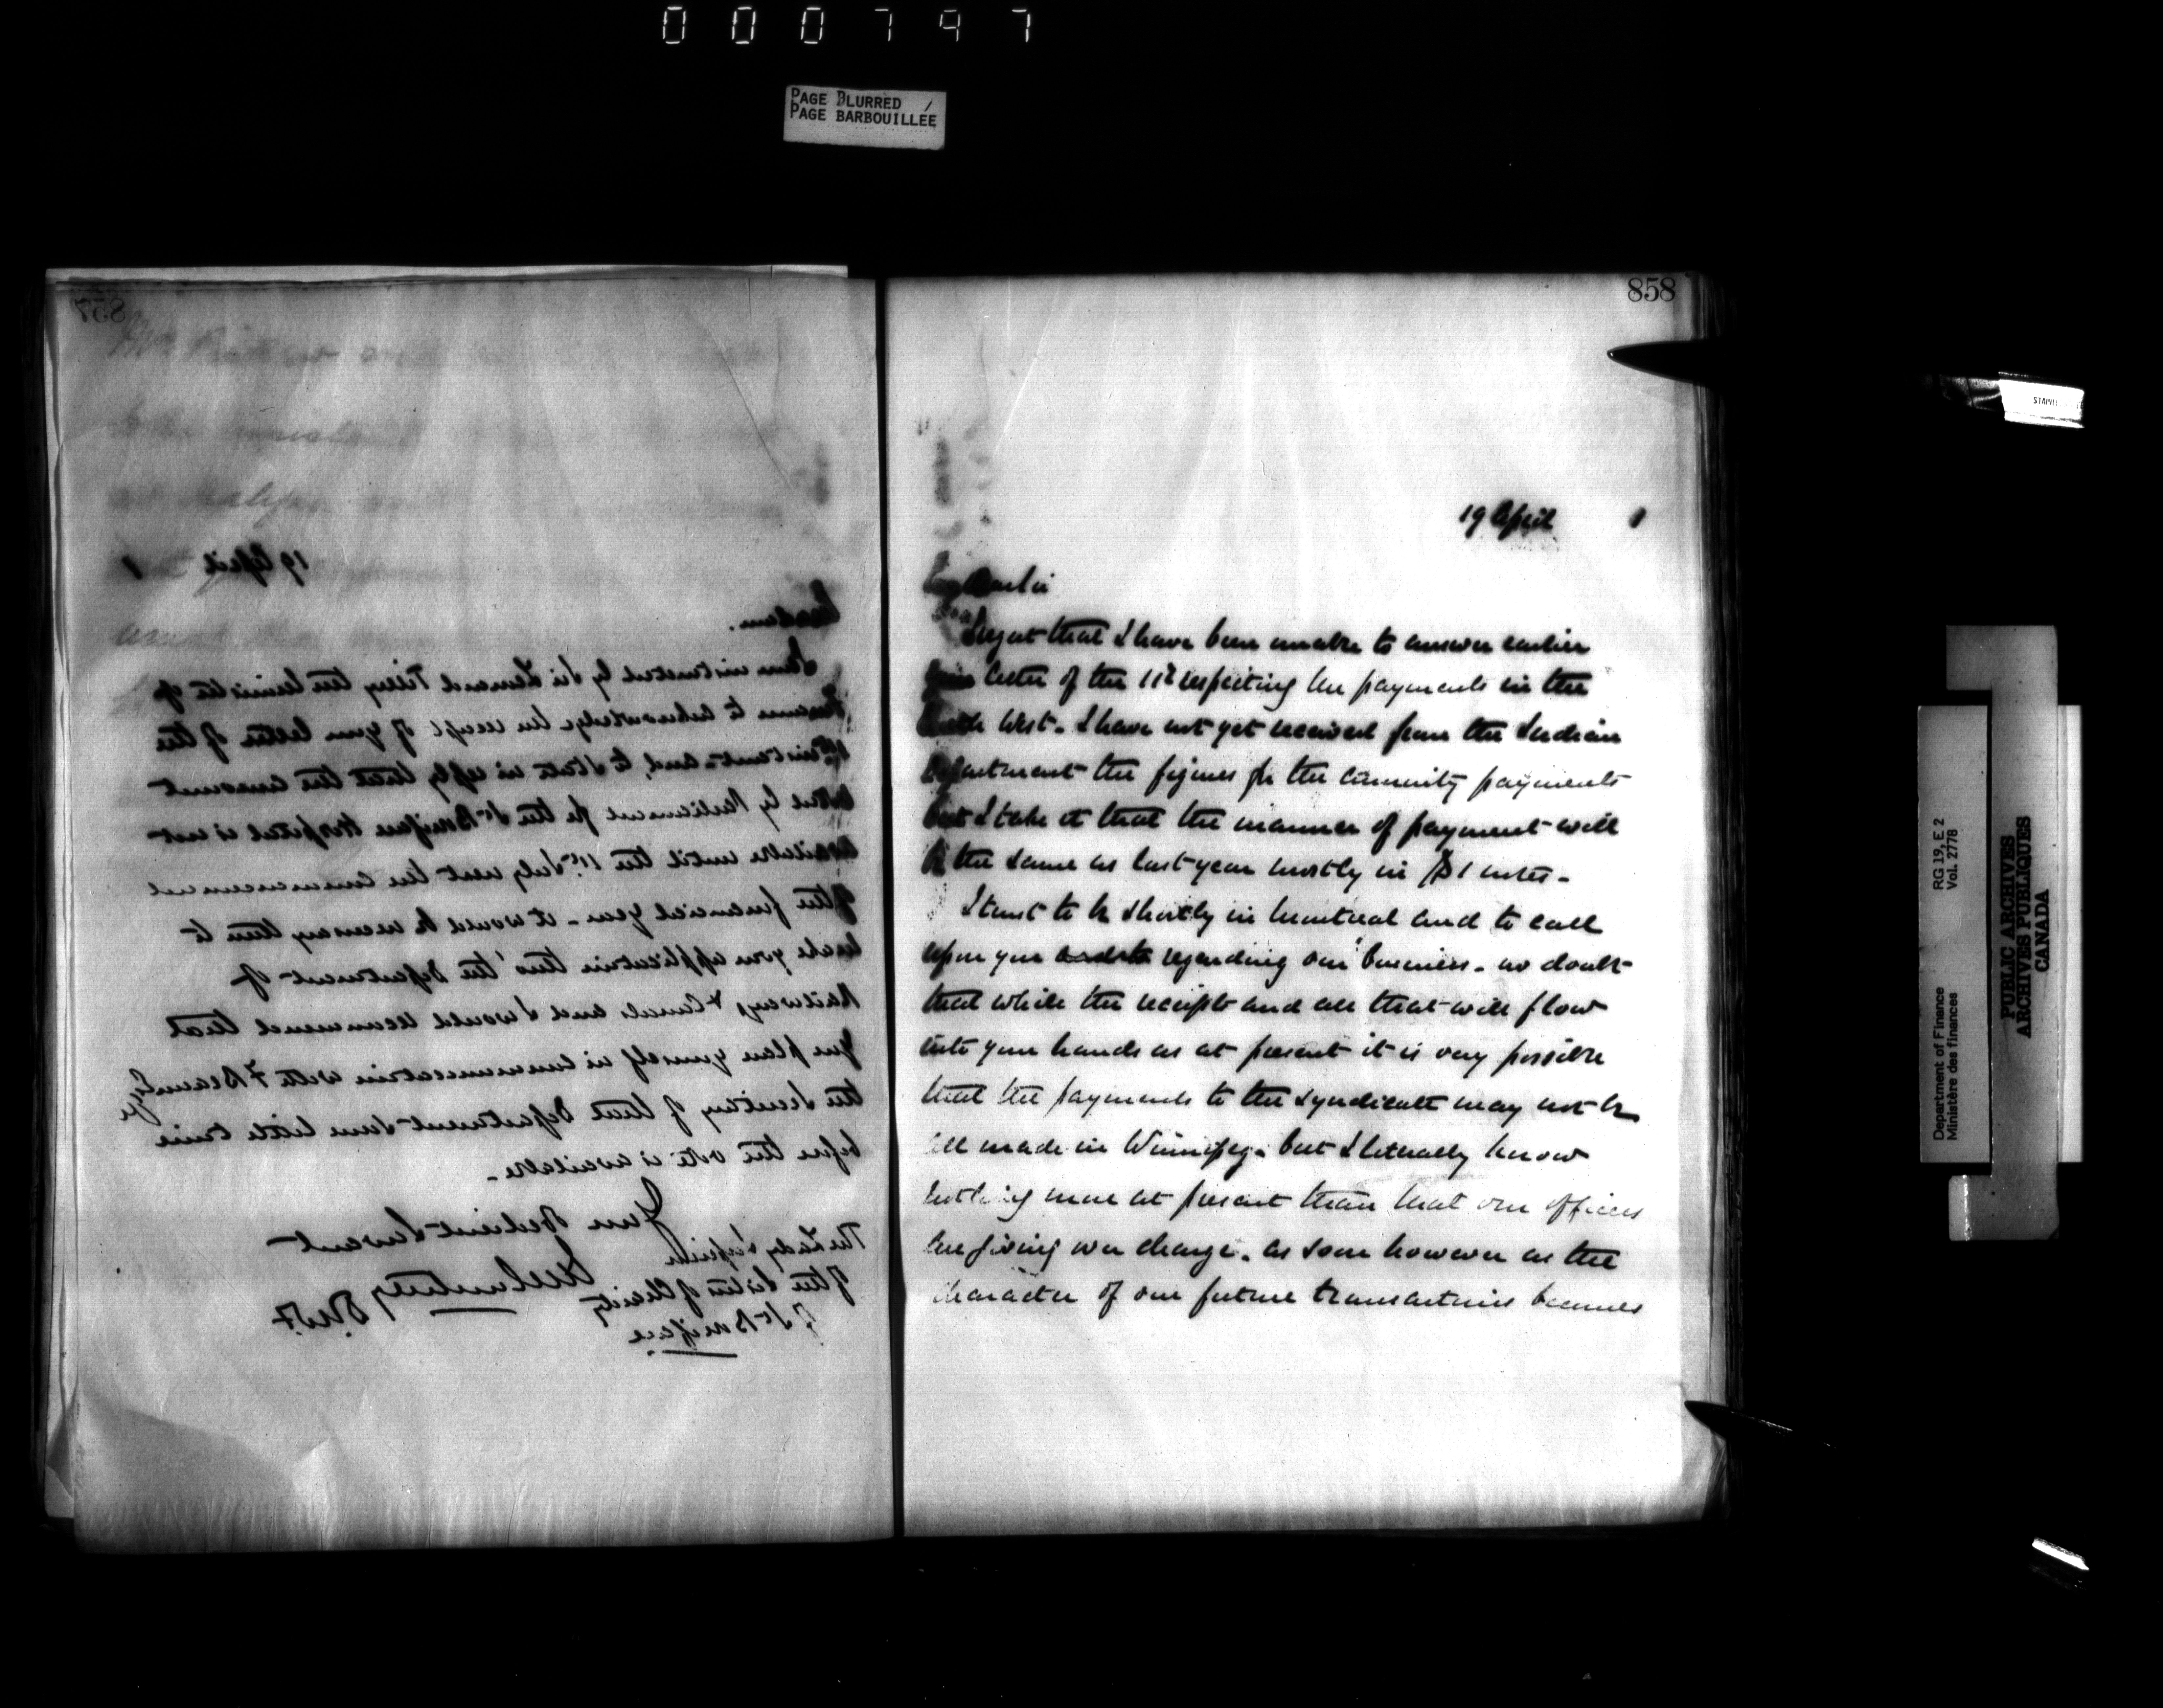 000797
PAGE BLURRED /
PAGE BARBOUILLÉE
857
19 April 1
Madam.
I am instructed by Sir Leonard Tilley the Minister of
Finance to acknowledge the receipt of your letter of the
instant and to state in reply that the amount
voted by Parliament for the St Boniface Hospital is not
available until the 1st July next the commencement
of the financial year - it would be necessary then to
make your application thro' the Department of
Railways & Canals and I would recommend that
you place yourself in communication with F Braun Esq
the Secretary of that Department some little time
before the vote is available -
Your Obedient Servant
D.M.F.
The Lady Superior
of the Sisters of Charity
St Boniface
858
19 April 1
I regret that I have been unable to answer earlier
your letter of the 11th respecting the payments in the
North West - I have not yet received from the Indian
Department the figures for the annuity payments
but I take it that the manner of payment will
be the same as last year mostly in $1 notes -
I trust to be shortly in Montreal and to call
upon you regarding our business - no doubt
that while the receipts and all that will flow
into your hands as at present it is very possible
that the payments to the Syndicate may not be
all made in Winnipeg - but I literally know
nothing more at present than that our officers
are giving over charge. As soon however as the
character of our future transactions becomes
Department of Finance RG 19, E 2
Ministère des finances Vol. 2778
PUBLIC ARCHIVES
ARCHIVES PUBLIQUES
CANADA